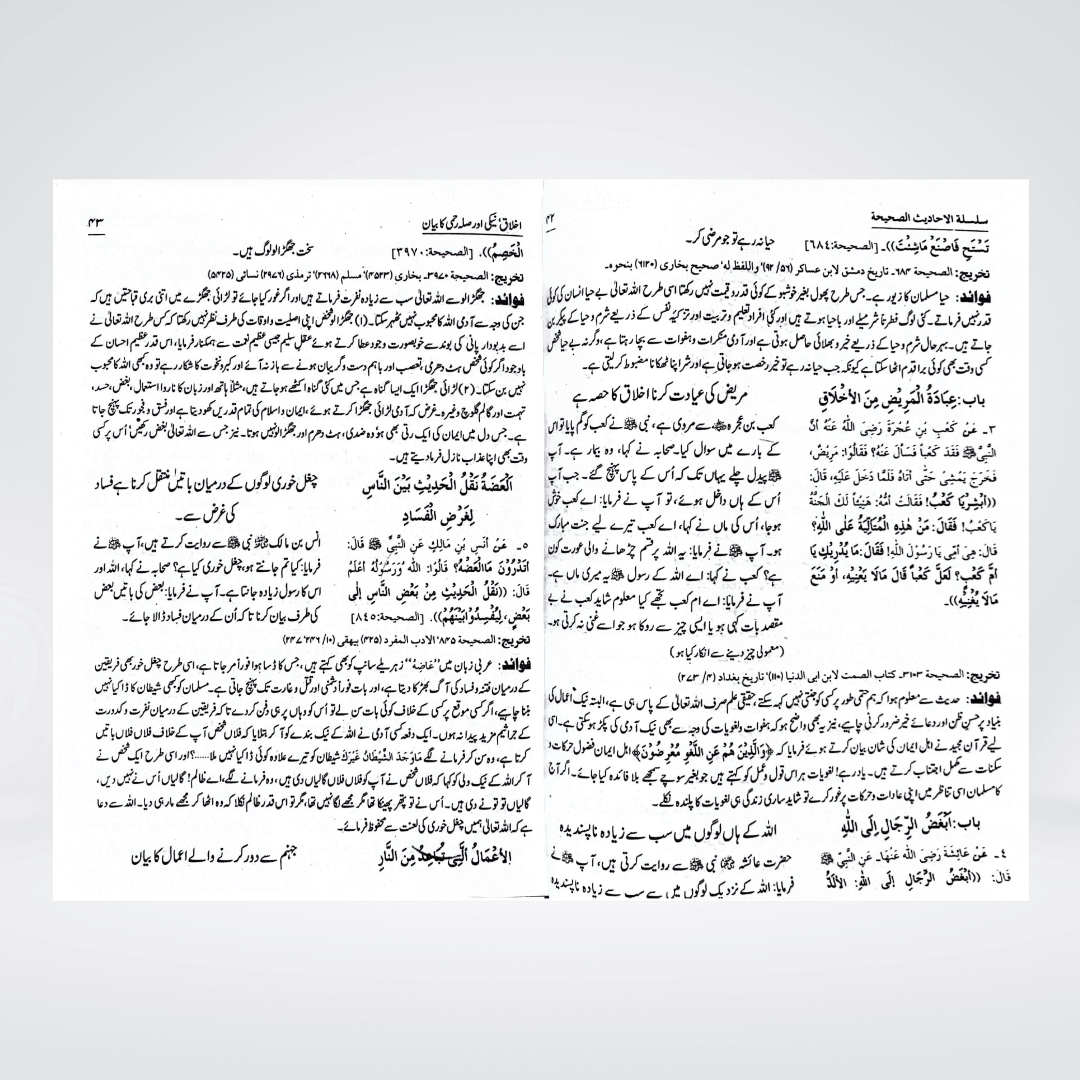 سلسلة الاحاديث الصحيحة
۴۲
تَسْتَحِ فَاصْنَعْ مَاشِئْتَ)). [الصحيحة:٦٨٤]
حیا نہ رہے تو جو مرضی کر۔
تخريج: الصحيحة ۶۸۴۔ تاريخ دمشق لابن عساكر (۵۶/ ۹۲)' واللفظ له' صحيح بخاری (۶۱۲۰) بنحوہ۔
فوائد: حیا مسلمان کا زیور ہے۔ جس طرح پھول بغیر خوشبو کے کوئی قدر و قیمت نہیں رکھتا اسی طرح اللہ تعالٰی بے حیا انسان کی کوئی
قدر نہیں فرماتے۔ کئی لوگ فطرتاً شرمیلے اور باحیا ہوتے ہیں اور کئی افراد تعلیم و تربیت اور تزکیہ نفس کے ذریعے شرم و حیا کے پیکر بن
جاتے ہیں۔ بہر حال شرم و حیا کے ذریعے خیر و بھلائی حاصل ہوتی ہے اور آدمی منکرات و ہفوات سے بچا رہتا ہے، وگرنہ بے حیا شخص
کسی وقت بھی کوئی برا قدم اٹھا سکتا ہے کیونکہ جب حیا نہ رہے تو خیر رخصت ہو جاتی ہے اور شر اپنا ٹھکانا مضبوط کر لیتی ہے۔
باب: عِيَادَةُ الْمَرِيْضِ مِنَ الْأَخْلَاقِ
مریض کی عیادت کرنا اخلاق کا حصہ ہے
۳۔ عَنْ كَعْبِ بْنِ عُجْرَةَ رَضِىَ اللّٰهُ عَنْهُ أَنَّ
النَّبِيَّ ﷺ فَقَدَ كَعْباً فَسَأَلَ عَنْهُ؟ فَقَالُوْا: مَرِيْضٌ،
فَخَرَجَ يَمْشِىْ حَتّٰى أَتَاهُ فَلَمَّا دَخَلَ عَلَيْهِ، قَالَ:
((أَبْشِرْيَا كَعْبُ! فَقَالَتْ أُمُّهُ: هَنِيْئاً لَكَ الْجَنَّةُ
يَاكَعْبُ! فَقَالَ: مَنْ هٰذِهِ الْمُتَأَلِّيَةُ عَلَى اللّٰهِ؟
قَالَ: هِىَ أُمِّىْ يَا رَسُوْلَ اللّٰهِ! فَقَالَ: مَا يُدْرِيْكِ يَا
أُمَّ كَعْبٍ؟ لَعَلَّ كَعْباً قَالَ مَالَا يَعْنِيْهِ، أَوْ مَنَعَ
مَالَا يُغْنِيْهِ))۔
کعب بن عجرہ ؓ سے مروی ہے، نبی ﷺ نے کعب کو گم پایا تو اس
کے بارے میں سوال کیا۔ صحابہ نے کہا، وہ بیمار ہے۔ آپ
ﷺ پیدل چلے یہاں تک کہ اُس کے پاس پہنچ گئے۔ جب آپ
اُس کے ہاں داخل ہوئے، تو آپ نے فرمایا: اے کعب خوش
ہو جا، اُس کی ماں نے کہا، اے کعب تیرے لیے جنت مبارک
ہو۔ آپ ﷺ نے فرمایا: یہ اللہ پر قسم چڑھانے والی عورت کون
ہے؟ کعب نے کہا: اے اللہ کے رسول ﷺ یہ میری ماں ہے۔
آپ نے فرمایا: اے ام کعب تجھے کیا معلوم شاید کعب نے بے
مقصد بات کہی ہو یا ایسی چیز سے روکا ہو جو اسے غنی نہ کرتی ہو۔
(معمولی چیز دینے سے انکار کیا ہو)
تخريج: الصحيحة ۳۱۰۳۔ كتاب الصمت لابن ابی الدنیا (۱۱۰)' تاريخ بغداد (۴/ ۲۷۳)
فوائد: حدیث سے معلوم ہوا کہ ہم حتمی طور پر کسی کو جنتی نہیں کہہ سکتے، حقیقی علم صرف اللہ تعالٰی کے پاس ہی ہے، البتہ نیک اعمال کی
بنیاد پر حسن ظن اور دعائے خیر ضرور کرنی چاہیے، نیز یہ بھی واضح ہوا کہ ہفوات و لغویات کی وجہ سے بھی نیک آدمی کی پکڑ ہو سکتی ہے۔ اسی
لیے قرآن مجید نے اہل ایمان کی شان بیان کرتے ہوئے فرمایا کہ ﴿وَالَّذِيْنَ هُمْ عَنِ اللَّغْوِ مُعْرِضُوْنَ﴾ اہل ایمان فضول حرکات و
سکنات سے مکمل اجتناب کرتے ہیں۔ یاد رہے! لغویات ہر اس قول و عمل کو کہتے ہیں جو بغیر سوچے سمجھے بلا فائدہ کیا جائے۔ اگر آج
کا مسلمان اسی تناظر میں اپنی عادات و حرکات پر غور کرے تو شاید ساری زندگی ہی لغویات کا پلندہ نکلے۔
باب: أَبْغَضُ الرِّجَالِ إِلَى اللّٰهِ
اللہ کے ہاں لوگوں میں سب سے زیادہ ناپسندیدہ
٤۔ عَنْ عَائِشَةَ رَضِىَ اللّٰهُ عَنْهَا۔ عَنِ النَّبِيِّ ﷺ
قَالَ: ((أَبْغَضُ الرِّجَالِ إِلَى اللّٰهِ: الْأَلَدُّ
حضرت عائشہ ؓ نبی ﷺ سے روایت کرتی ہیں، آپ ﷺ نے
فرمایا: اللہ کے نزدیک لوگوں میں سے سب سے زیادہ ناپسندیدہ
اخلاق' نیکی اور صلہ رحمی کا بیان
۴۳
الْخَصِمُ)). [الصحيحة:٣٩٧٠]
سخت جھگڑالو لوگ ہیں۔
تخريج: الصحيحة ۳۹۷۰۔ بخاری (۴۵۲۳)' مسلم (۲۶۶۸)' ترمذی (۲۹۷۶) نسائی (۵۴۲۵)
فوائد: جھگڑالو سے اللہ تعالٰی سب سے زیادہ نفرت فرماتے ہیں اور اگر غور کیا جائے تو لڑائی جھگڑے میں اتنی بری قباحتیں ہیں کہ
جن کی وجہ سے آدمی اللہ کا محبوب نہیں ٹھہر سکتا۔ (۱) جھگڑالو شخص اپنی اصلیت و اوقات کی طرف نظر نہیں رکھتا کہ کس طرح اللہ تعالٰی نے
اسے بد بودار پانی کی بوند سے خوبصورت وجود عطا کرتے ہوئے عقلِ سلیم جیسی عظیم نعمت سے ہمکنار فرمایا، اس قدر عظیم احسان کے
باوجود اگر کوئی شخص ہٹ دھرمی، تعصب اور باہم دست و گریبان ہونے سے باز نہ آئے اور کبر و نخوت کا شکار رہے تو وہ کبھی اللہ کا محبوب
نہیں بن سکتا۔ (۲) لڑائی جھگڑا ایک ایسا گناہ ہے جس میں کئی گناہ اکٹھے ہو جاتے ہیں، مثلاً ہاتھ اور زبان کا ناروا استعمال، بغض، حسد،
تہمت اور گالم گلوچ وغیرہ۔ غرض کہ آدمی لڑائی جھگڑا کرتے ہوئے، ایمان و اسلام کی تمام قدریں کھو دیتا ہے اور فسق و فجور تک پہنچ جاتا
ہے۔ جس دل میں ایمان کی ایک رتی بھی ہو وہ ضدی، ہٹ دھرم اور جھگڑالو نہیں ہوتا۔ نیز جس سے اللہ تعالٰی بغض رکھیں' اُس پر کسی
وقت بھی اپنا عذاب نازل فرما دیتے ہیں۔
اَلْعَضَةُ نَقْلُ الْحَدِيْثِ بَيْنَ النَّاسِ
لِغَرْضِ الْفَسَادِ
چغل خوری لوگوں کے درمیان باتیں منتقل کرنا ہے فساد
کی غرض سے۔
٥۔ عَنْ أَنَسِ بْنِ مَالِكٍ عَنِ النَّبِيِّ ﷺ قَالَ:
أَتَدْرُوْنَ مَالْعَضْهُ؟ قَالُوْا: اللّٰهُ وَرَسُوْلُهُ أَعْلَمُ
قَالَ: ((نَقْلُ الْحَدِيْثِ مِنْ بَعْضِ النَّاسِ إِلَى
بَعْضٍ، لِيُفْسِدُوْا بَيْنَهُمْ)). [الصحيحة:٨٤٥]
انس بن مالک ؓ نبی ﷺ سے روایت کرتے ہیں، آپ ﷺ نے
فرمایا: کیا تم جانتے ہو، چغل خوری کیا ہے؟ صحابہ نے کہا، اللہ اور
اس کا رسول زیادہ جانتا ہے۔ آپ نے فرمایا: بعض کی باتیں بعض
کی طرف بیان کرنا تاکہ اُن کے درمیان فساد ڈالا جائے۔
تخريج: الصحيحة ۸۴۵۔ الادب المفرد (۴۲۵) بيهقی (۱۰/ ۲۴۶' ۲۴۷)
فوائد: عربی زبان میں "عَاضِهٌ" زہریلے سانپ کو بھی کہتے ہیں، جس کا ڈسا ہوا فوراً مر جاتا ہے، اسی طرح چغل خور بھی فریقین
کے درمیان فتنہ و فساد کی آگ بھڑکا دیتا ہے، اور بات فوراً دشمنی اور قتل و غارت تک پہنچ جاتی ہے۔ مسلمان کو کبھی شیطان کا ڈاکیا نہیں
بننا چاہیے، اگر کسی موقع پر کسی کے خلاف کوئی بات سن لے تو اُس کو وہاں پر ہی دفن کر دے تا کہ فریقین کے درمیان نفرت و کدورت
کے جراثیم مزید پیدا نہ ہوں۔ ایک دفعہ کسی آدمی نے اللہ کے نیک بندے کو آ کر بتلایا کہ فلاں شخص آپ کے خلاف فلاں فلاں باتیں
کرتا ہے، وہ سن کر فرمانے لگے مَاوَجَدَ الشَّيْطَانُ غَيْرَكَ شیطان کو تیرے علاوہ کوئی ڈاکیا نہیں ملا......؟ اور اسی طرح ایک شخص نے
آ کر اللہ کے نیک ولی کو کہا کہ فلاں شخص نے آپ کو فلاں فلاں گالیاں دی ہیں، وہ فرمانے لگے، اے ظالم! گالیاں اُس نے نہیں دیں،
گالیاں تو تو نے دی ہیں۔ اُس نے تو پتھر پھینکا تھا مگر مجھے لگا نہیں تھا، مگر تو اس قدر ظالم نکلا کہ وہ اٹھا کر مجھے مار ہی دیا۔ اللہ سے دعا
ہے کہ اللہ تعالٰی ہمیں چغل خوری کی لعنت سے محفوظ فرمائے۔
اَلْأَعْمَالُ الَّتِىْ تُبَاعِدُ مِنَ النَّارِ
جہنم سے دور کرنے والے اعمال کا بیان